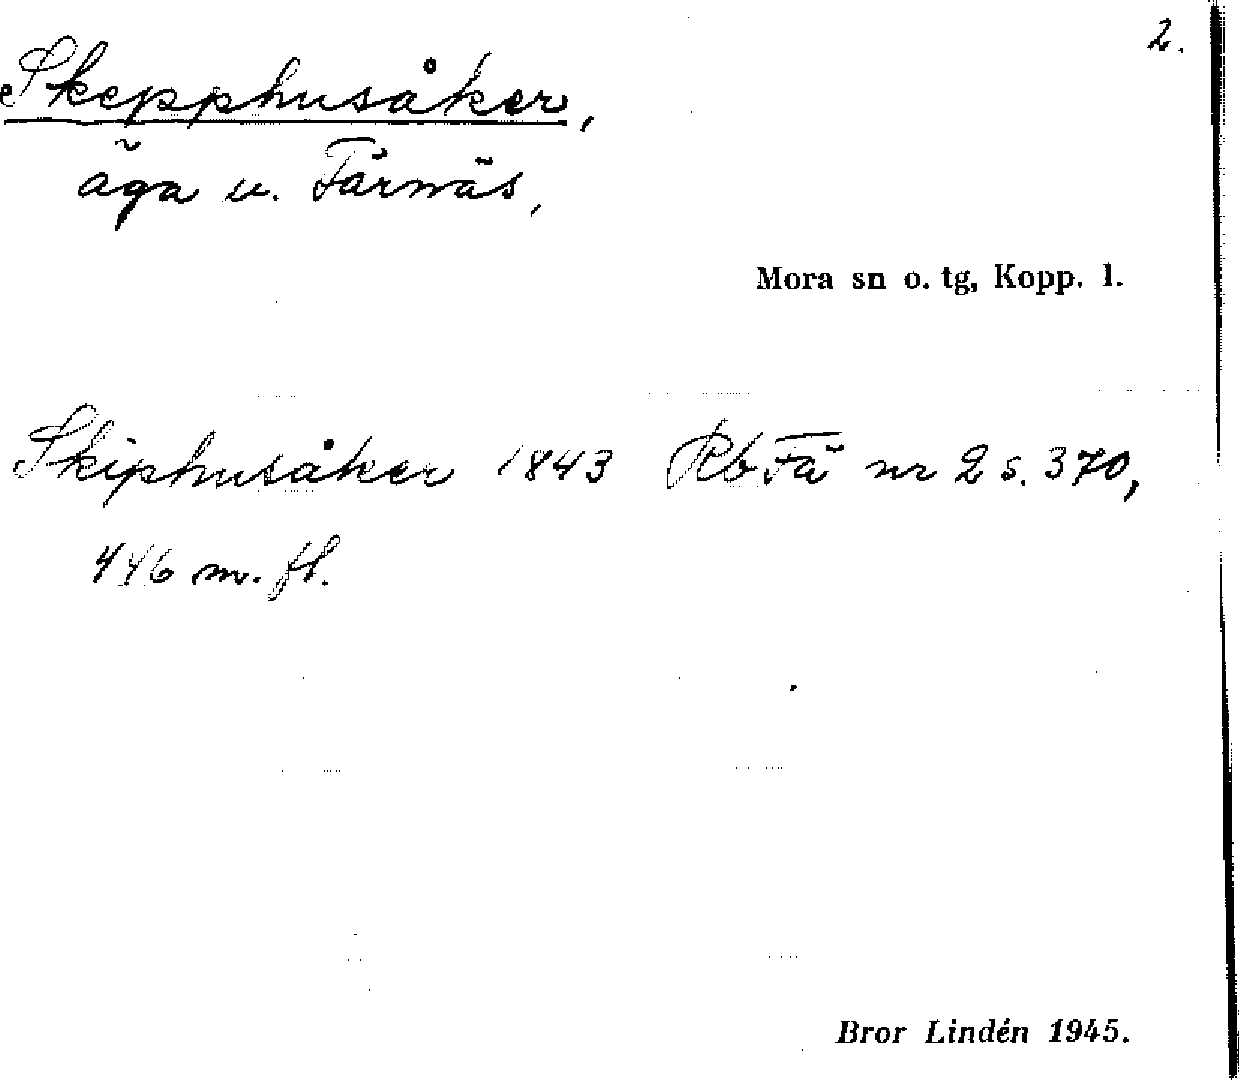 2.
Skepphusåker,
äga u. Färnäs,
Mora sn o. tg, Kopp. l.
Skiphusåker 1843 Rb Fä nr 2 s. 370,
446 m. fl.
Bror Lindén 1945.